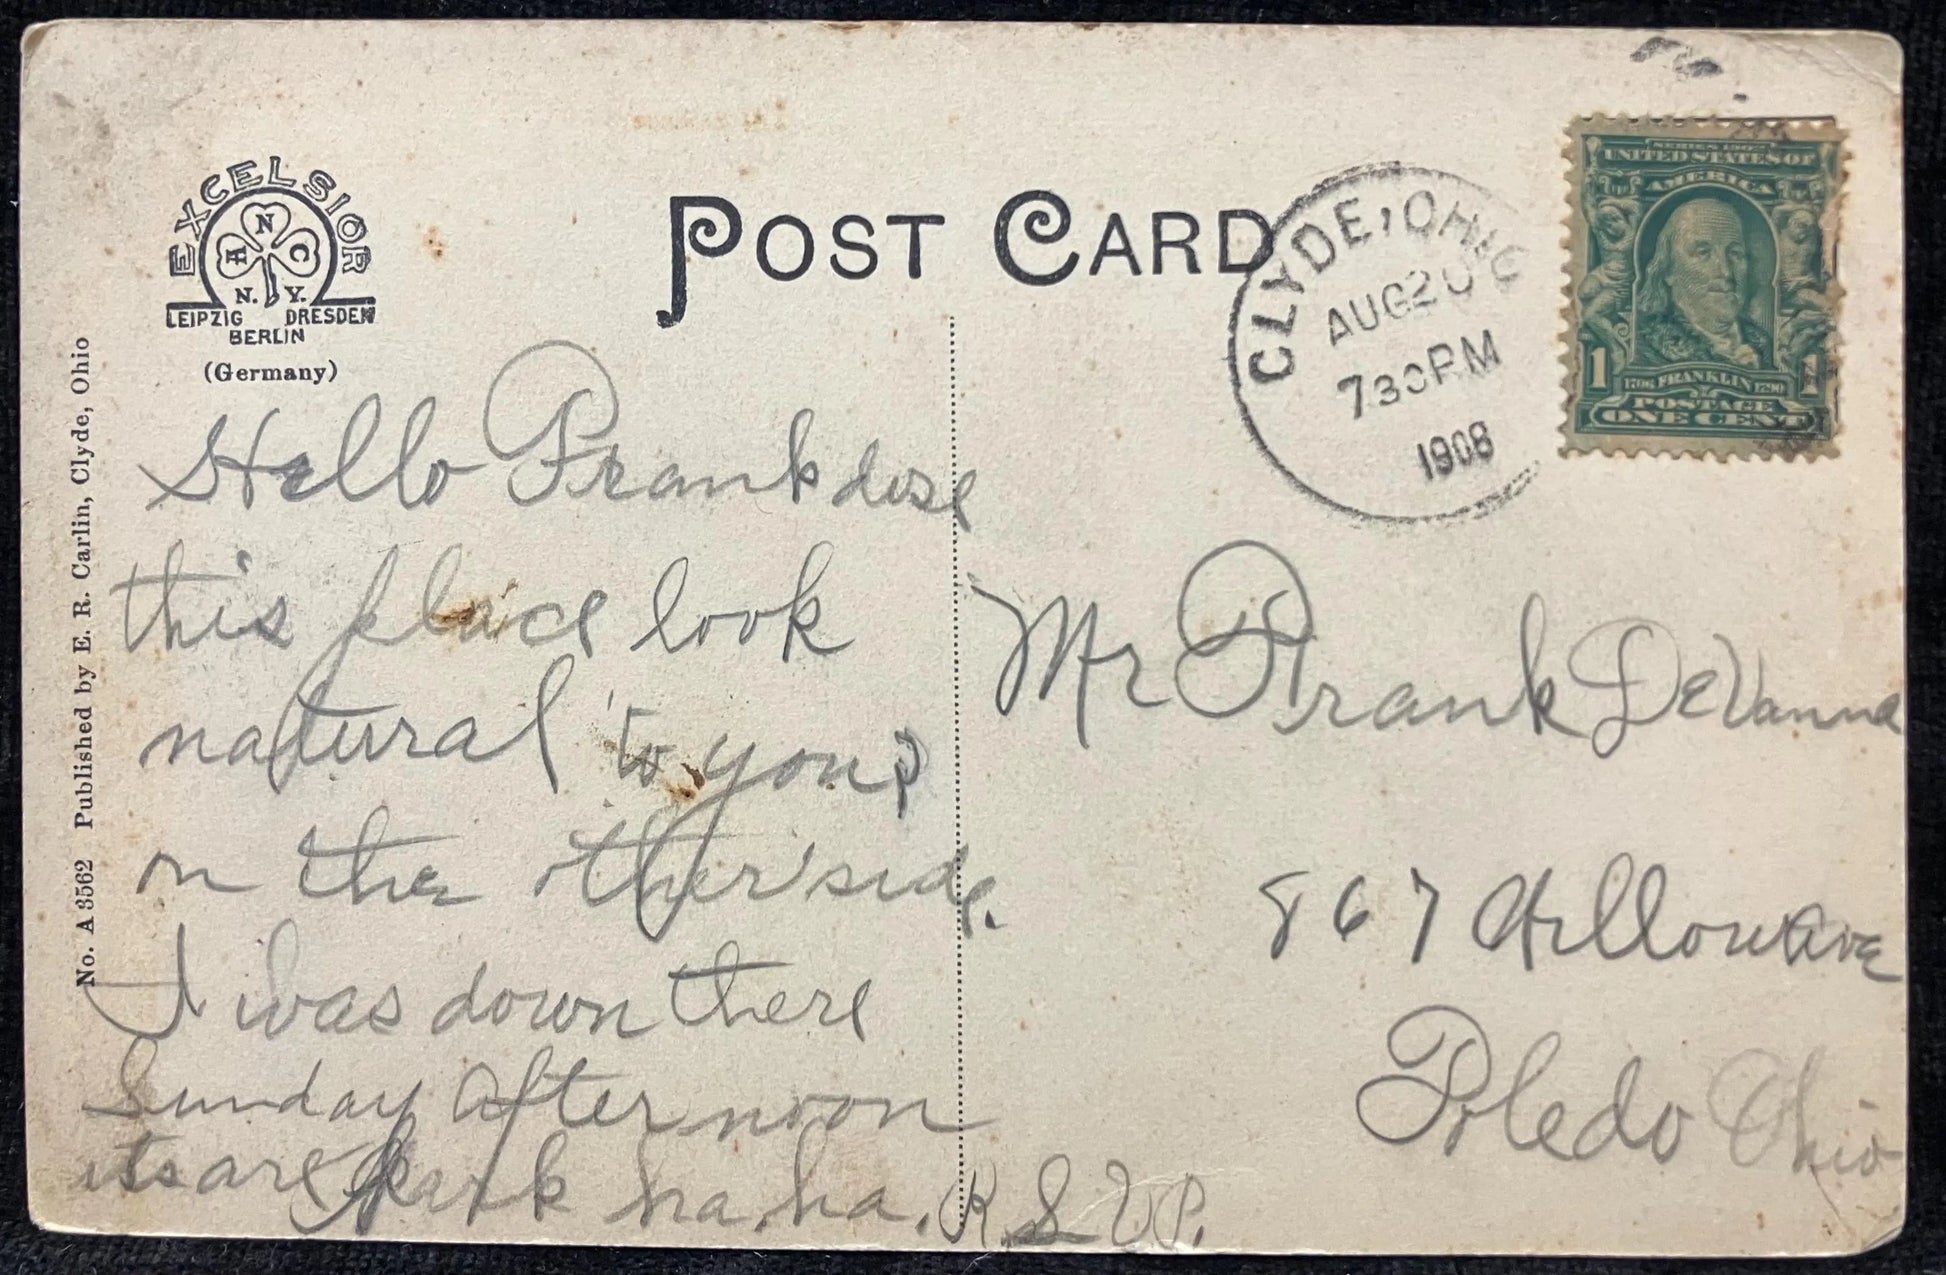 EXCELSIOR
A N C
N. Y.
LEIPZIG DRESDEN
BERLIN
(Germany)
No. A 3562 Published by E. R. Carlin, Clyde, Ohio
POST CARD
CLYDE, OHIO
AUG 20
7 30 PM
1908
SERIES 1902
UNITED STATES OF
AMERICA
1 1
1706 FRANKLIN 1790
POSTAGE
ONE CENT
Hello Frank dose
this place look
natural to you?
on the other side.
I was down there
Sunday afternoon
its are Park ha. ha. R.S.V.P.
Mr Frank DeVanna
867 Ave
Toledo Ohio